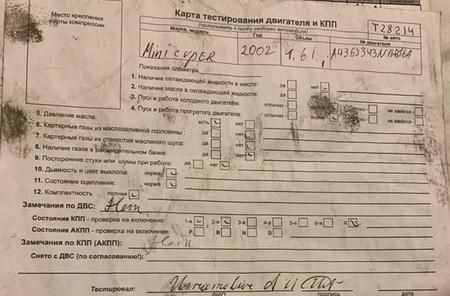 Место крепления
карты компрессии
Карта тестирования двигателя и КПП
(прикалывать к листу разборки автомобиля)
T28214
№ авто
Марка, модель Год Объем № двигателя
Mini 2002 1.6i,
Показания одометра:
1. Наличие охлаждающей жидкости в масле: да нет
2. Наличие масла в охлаждающей жидкости: да нет
3. Пуск и работа холодного двигателя: отлично не завёлся
4. Пуск и работа прогретого двигателя: отлично не завёлся
5. Давление масла: есть нет
6. Картерные газы из маслозаливной горловины: да нет
7. Картерные газы из отверстия масляного щупа: да нет
8. Наличие газов в расширительном бачке: да нет
9. Посторонние стуки или шумы при работе: да нет
10. Дымность и цвет выхлопа: норма
11. Состояние сцепления: норма
12. Комплектность полная
Замечания по ДВС: Нет
Состояние КПП - проверка на включение: 1-я 2-я 3-я 4-я 5-я 6-я R
Состояние АКПП - проверка на включение: P R N D
Замечания по КПП (АКПП): Нет
Снято с ДВС (по согласованию!):
Тестировал:
ФИО подпись дата